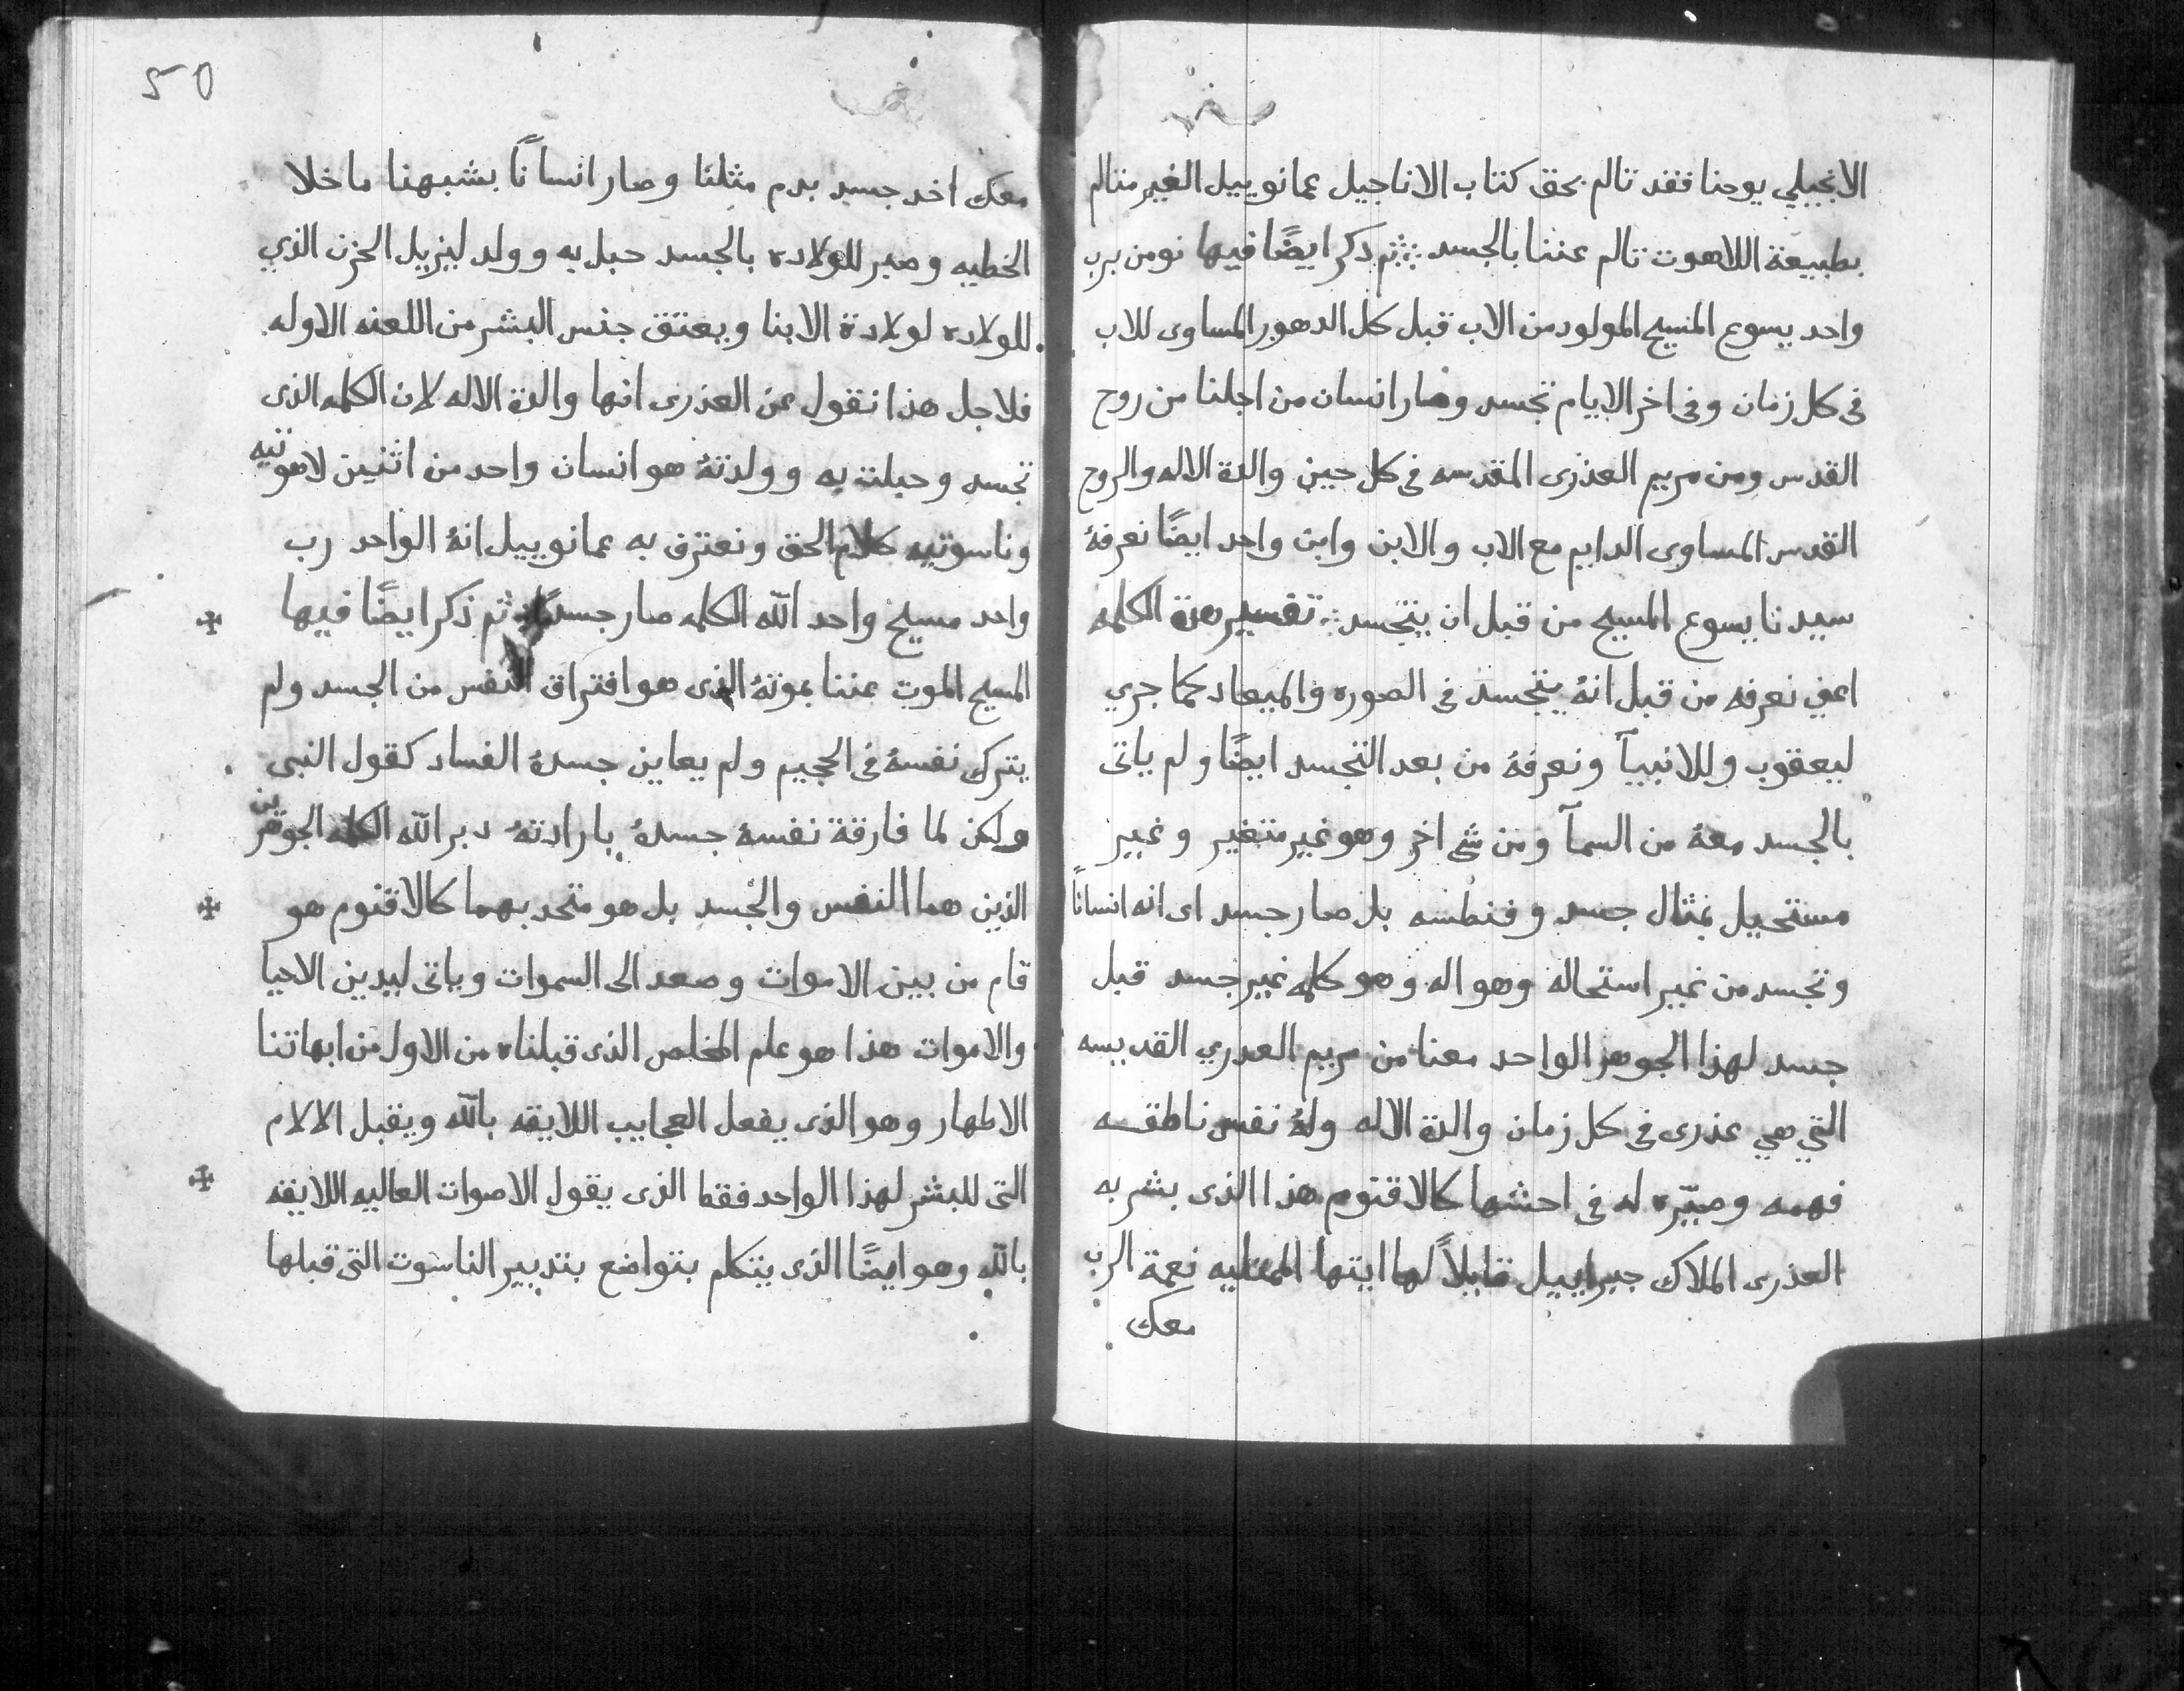 الانجيلي يوحنا فقد تالم بحق كتاب الاناجيل عمانوييل الغير متالم
بطبيعة اللاهوت تالم عننا بالجسد ثم دكر ايضًا فيها نومن برب
واحد يسوع المسيح المولود من الاب قبل كل الدهور المساوى للاب
فى كل زمان وفى اخر الايام تجسد وصار انسان من اجلنا من روح
القدس ومن مريم العذرى المقدسه فى كل حين والدة الاله والروح
القدس المساوى الدايم مع الاب والابن وابن واحد ايضًا نعرفهُ
سيدنا يسوع المسيح من قبل ان يتجسد تفسير هدة الكلمه
اعني نعرفه من قبل انهُ يتجسد فى الصوره والميعاد كما جري
ليعقوب وللانبيآ ونعرفهُ من بعد التجسد ايضًا ولم ياتى
بالجسد معهُ من السمآ ومن شى اخر وهو غير متغير وغير
مستحيل بمثال جسد وفنطسه بل صار جسد اى انه انسانًا
وتجسد من غير استحاله وهو اله وهو كلمه غير جسد قبل
جسد لهذا الجوهر الواحد معنا من مريم العدري القديسه
التي هي عذرى فى كل زمان والدة الاله ولهُ نفس ناطقه
فهمه وصيّره له فى احشها كالاقنوم هذا الذى بشر به
العذرى الملاك جبراييل قايلاً لها ايتها الممتليه نعمة الرب
معك
50
معك اخد جسد بدم مثلنا وصار انسانًا بشبهنا ما خلا
الخطيه وصبر للولاده بالجسد حبل به وولد ليزيل الحزن الذي
للولاده لولادة الابنا ويعتق جنس البشر من اللعنه الاوله
فلاجل هذا نقول عن العذرى انها والدة الاله لان الكلمه الذى
تجسد وحبلت به وولدتهُ هو انسان واحد من اثنين لاهوتيه
وناسوتيه كلام الحق ونعترف به عمانوييل انهُ الواحد رب
واحد مسيح واحد الله الكلمه صار جسدًا ثم ذكر ايضًا فيها
المسيح الموت عننا بموتهُ الذى هو افتراق النفس من الجسد ولم
يترك نفسهُ فى الجحيم ولم يعاين جسدهُ الفساد كقول النبى
ولكن لما فارقة نفسهُ جسدهُ بارادتهُ دبر الله الكلمه الجوهرين
الذين هما النفس والجسد بل هو متحد بهما كالاقنوم هو
قام من بين الاموات وصعد الى السموات وياتى ليدين الاحيا
والاموات هذا هو علم المخلص الذى قبلناه من الاول من ابهاتنا
الاطهار وهو الذى يفعل العجايب اللايقه بالله ويقبل الالام
التى للبشر لهذا الواحد فقط الذى يقول الاصوات العاليه اللايقه
بالله وهو ايضًا الذى يتكلم بتواضع بتدبير الناسوت التى قبلها